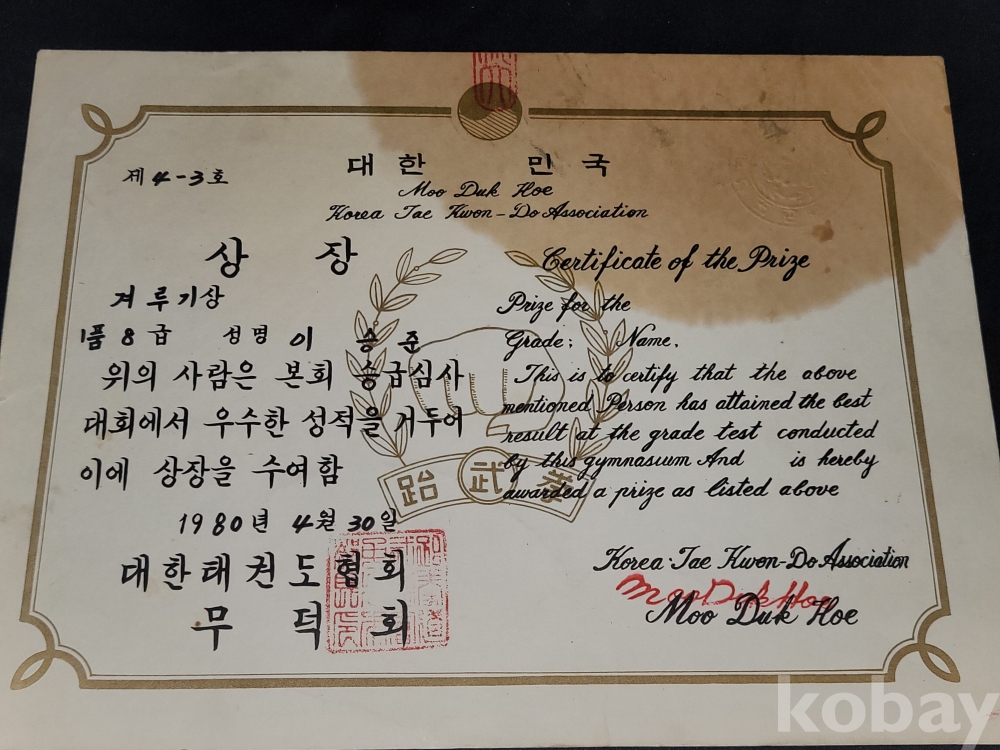 대한 민국
제 4-3호
Moo Duk Hoe
Korea Tae Kwon-Do Association
상 장
겨루기상
1품 8급 성명 이 승 준
위의 사람은 본회 승급심사
대회에서 우수한 성적을 거두어
이에 상장을 수여함
1980년 4월 30일
대한태권도협회
무 덕 회
Certificate of the Prize
Prize for the
Grade; Name.
This is to certify that the above
mentioned Person has attained the best
result at the grade test conducted
by this gymnasium And is hereby
awarded a prize as listed above
Korea Tae Kwon-Do Association
Moo Duk Hoe
Moo Duk Hoe
跆 武 拳
kobay